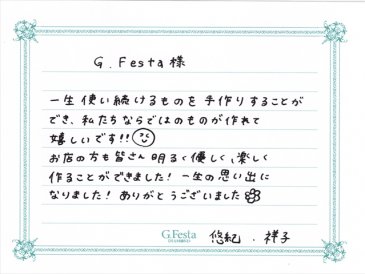 G.Festa様
一生使い続けるものを手作りすることが
でき、私たちならではのものが作れて
嬉しいです!!
お店の方も皆さん明るく優しく、楽しく
作ることができました!一生の思い出に
なりました!ありがとうございました
G.Festa
悠紀.祥子